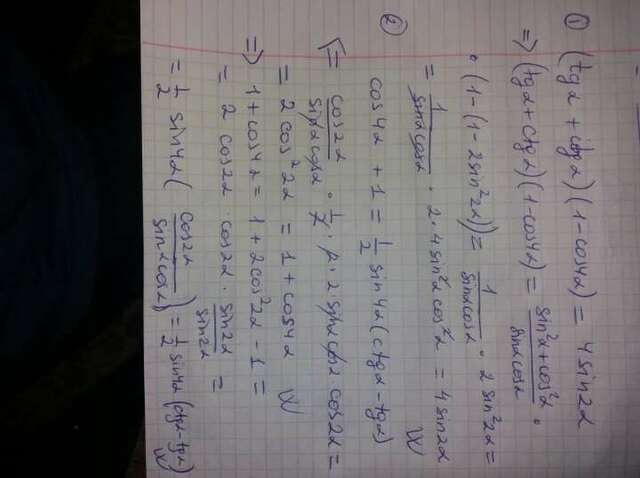 ① (tgα + ctgα)(1-cos4α) = 4sin2α
=> (tgα + ctgα)(1-cos4α) = (sin²α + cos²α)/(sinαcosα) ·
· (1-(1-2sin²2α)) = 1/(sinαcosα) · 2sin²2α =
= 1/(sinαcosα) · 2·4sin²αcos²α = 4sin2α W
② cos4α + 1 = ½ sin4α (ctgα - tgα)
<= cos2α/(sinαcosα) · ½ · 2 · 2 sinαcosα · cos2α =
= 2cos²2α = 1 + cos4α W
=> 1 + cos4α = 1 + 2cos²2α - 1 =
= 2 cos2α · cos2α · sin2α/sin2α =
= ½ sin4α (cos2α/(sinαcosα)) = ½ sin4α (ctgα - tgα) W